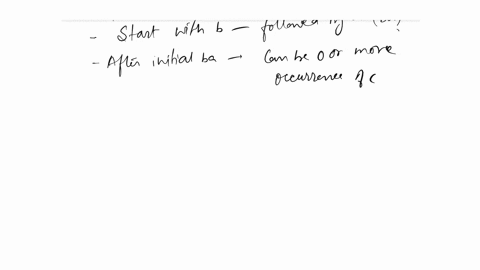 - Start with b - followed by
- After initial ba → Can be 0 or more
occurrence of c